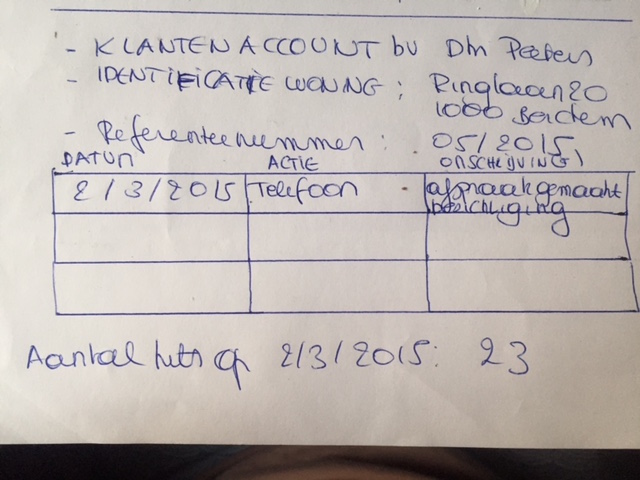 - KLANTENACCOUNT bv Dhr Peeters
- IDENTIFICATIE WONING : Ringlaan 20
1000 Berchem
- Referentienummer : 05/2015
DATUM ACTIE OMSCHRIJVING
2/3/2015 Telefoon afspraak gemaakt
bezichtiging
Aantal hits op 2/3/2015: 23